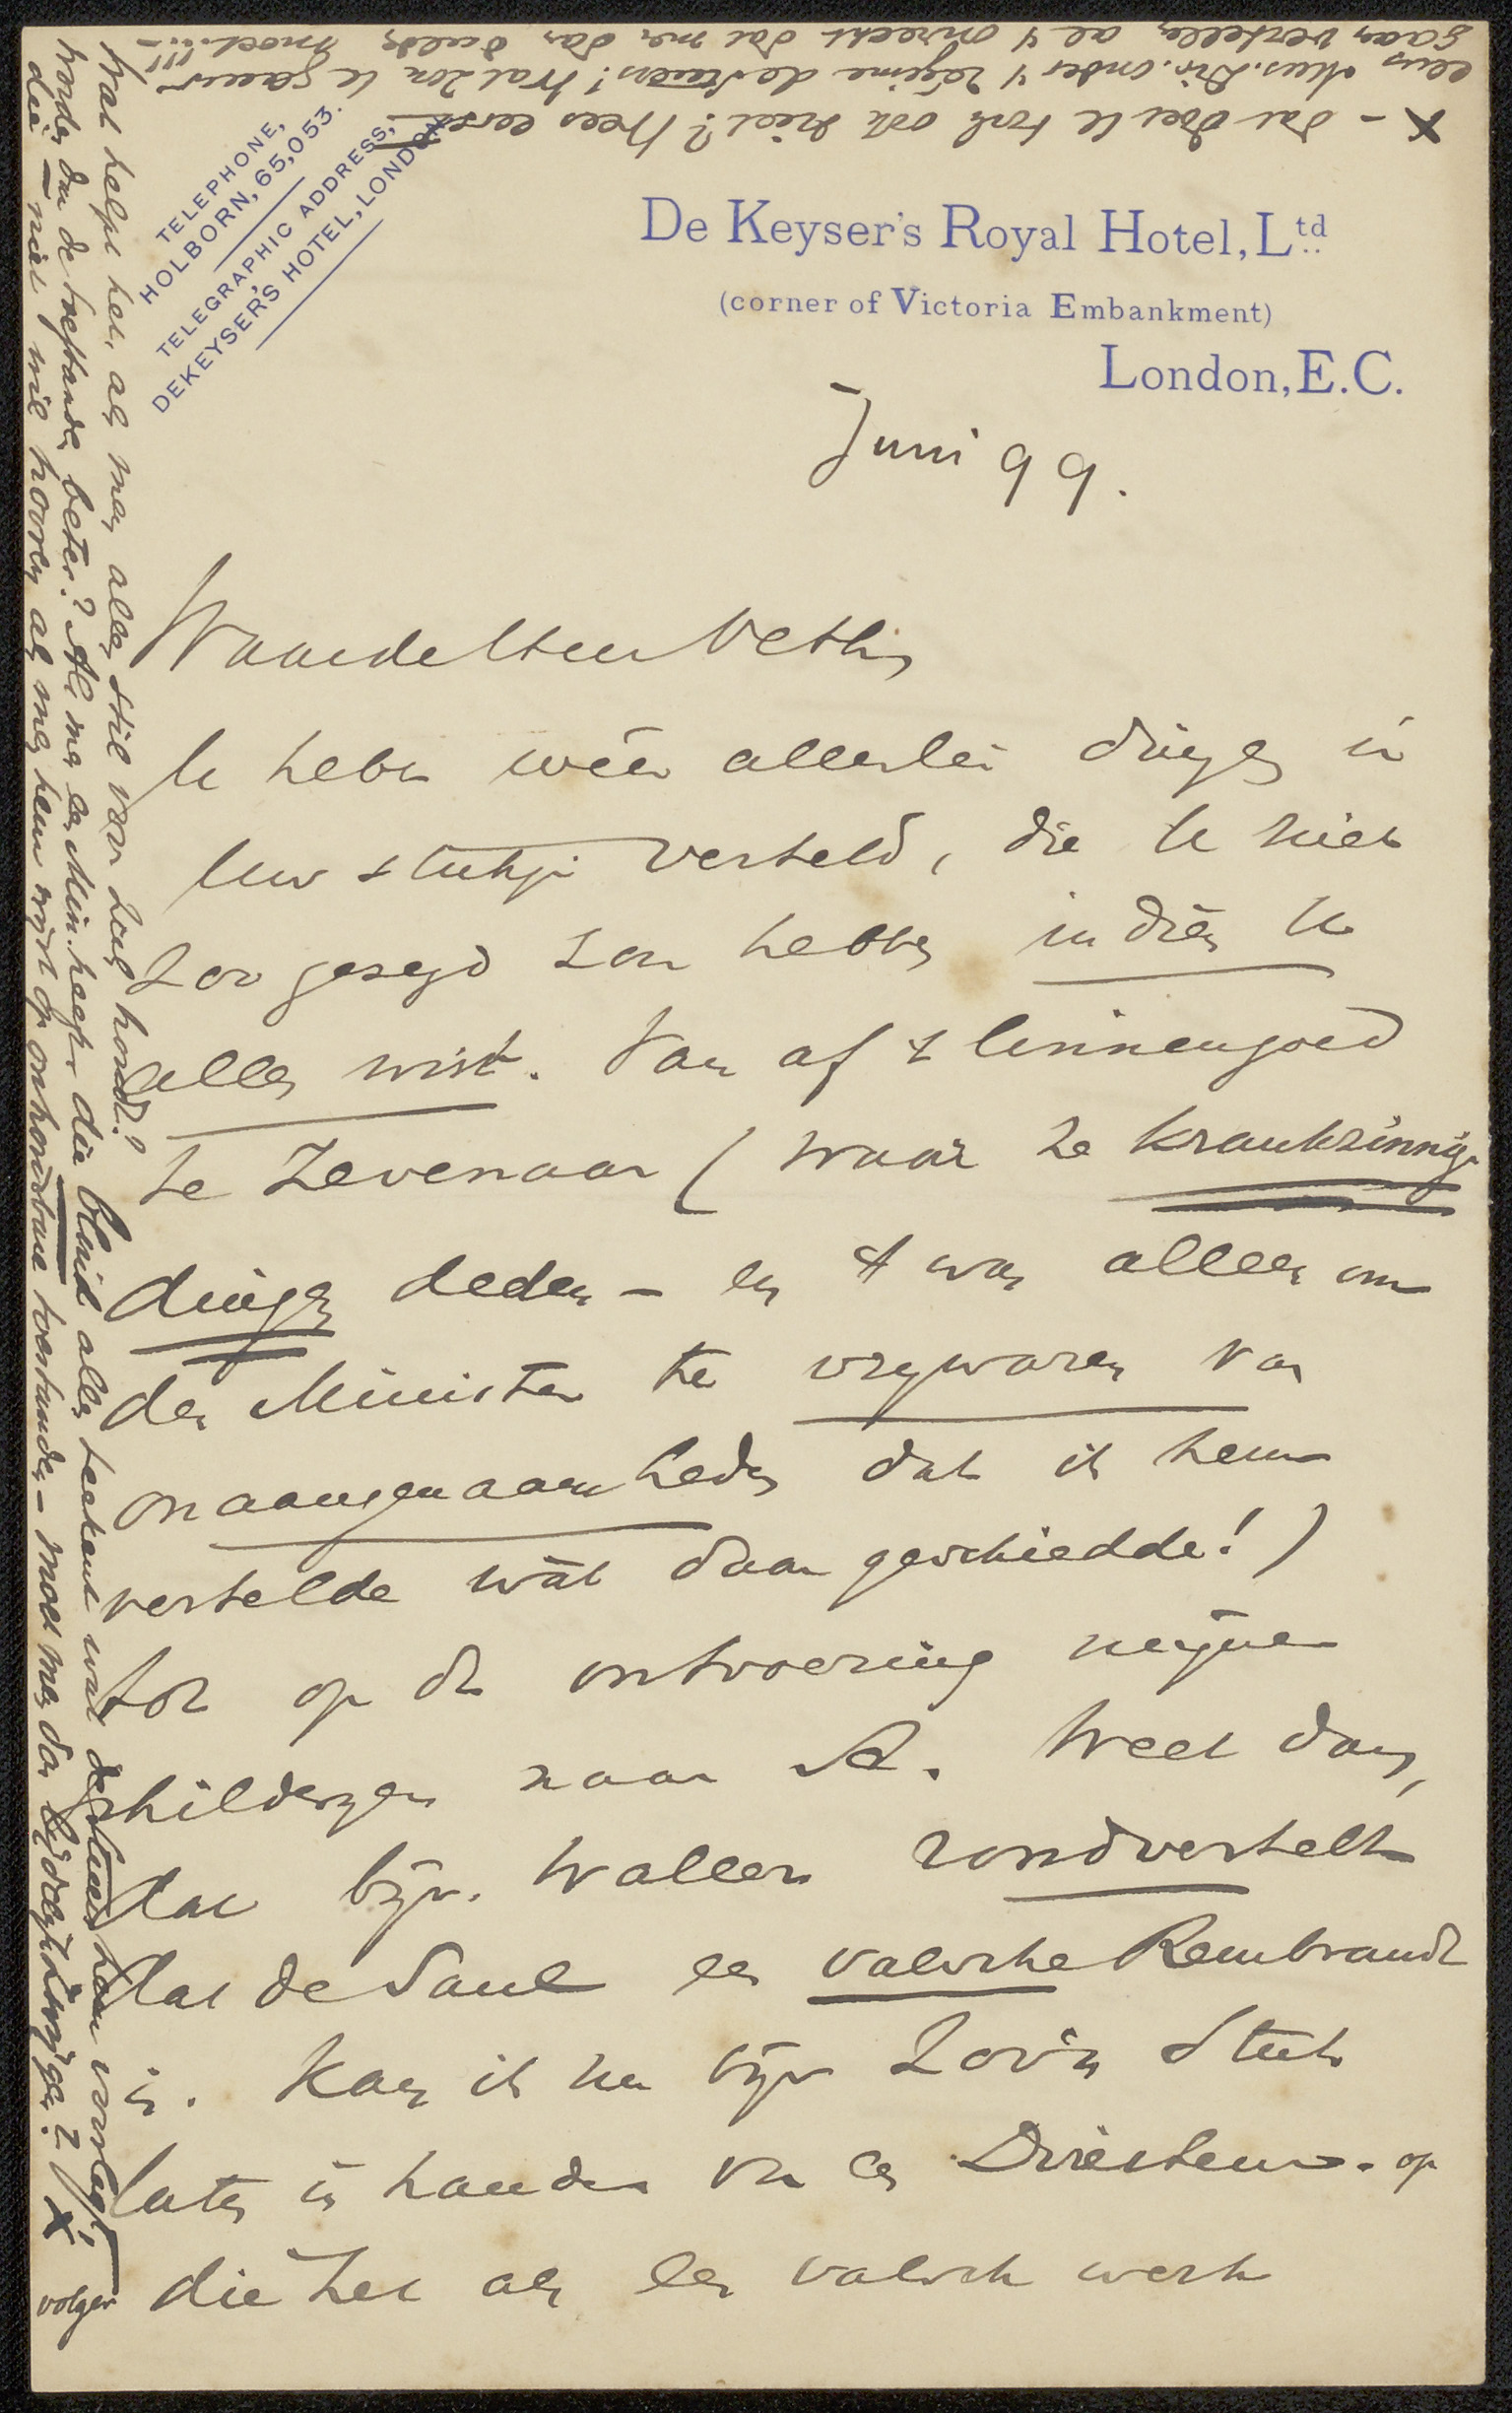 TELEPHONE,
HOLBORN, 65,053.
TELEGRAPHIC ADDRESS,
DEKEYSER'S HOTEL, LONDON
De Keyser's Royal Hotel, Ltd
(corner of Victoria Embankment)
London, E.C.
Juni 99.
Waarde Heer Veth,
U hebt wéér allerlei dingen in
Uw stukje verteld, die U niet
zoo gezegd zou hebben indien U
alles wist. Van af 't linnengoed
te Zevenaar (waar ze krankzinnige
dingen deden — en 't was alleen om
den Minister te vrijwaren van
onaangenaamheden dat ik hem
vertelde wàt daar geschiedde!)
tot op de ontvoering mijner
schilderijen naar A. Weet dan,
dat bijv. Waller rondvertelt
dat de Saul een valsche Rembrandt
is. Kan ik nu bijv zoo'n stuk
laten in handen van een Directeur op
die het als een valsch werk
Wat helpt het, als men alles stil voor zich houdt?
worden dan de toestanden beter? Als men een Min. heeft die blind alles teekent wat de Stuers hem voorlegt,
die — niet wil hooren als men hem wijst op onhoudbare toestanden — moet men dan
volgen
X — dat doet U toch ook niet? Wees eerst
eens Mus. Dir. onder 't régime de Stuers! Wat zou U gauw
gaan vertellen al 't onrecht dat men dan dulden moet!!! —